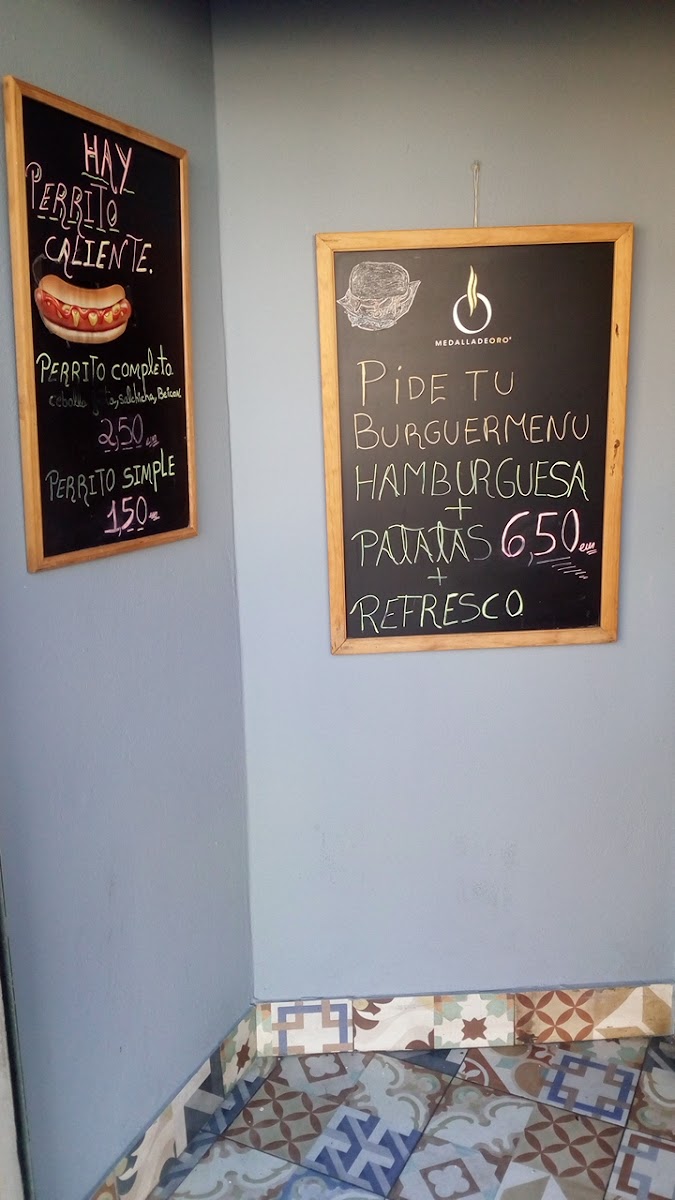 HAY
PERRITO
CALIENTE.
PERRITO completo
cebolla, salchicha, Beicon
2,50 eur
PERRITO SIMPLE
1,50 eur
MEDALLADEORO
PIDE TU
BURGUERMENU
HAMBURGUESA
+
PATATAS 6,50 eur
+
REFRESCO